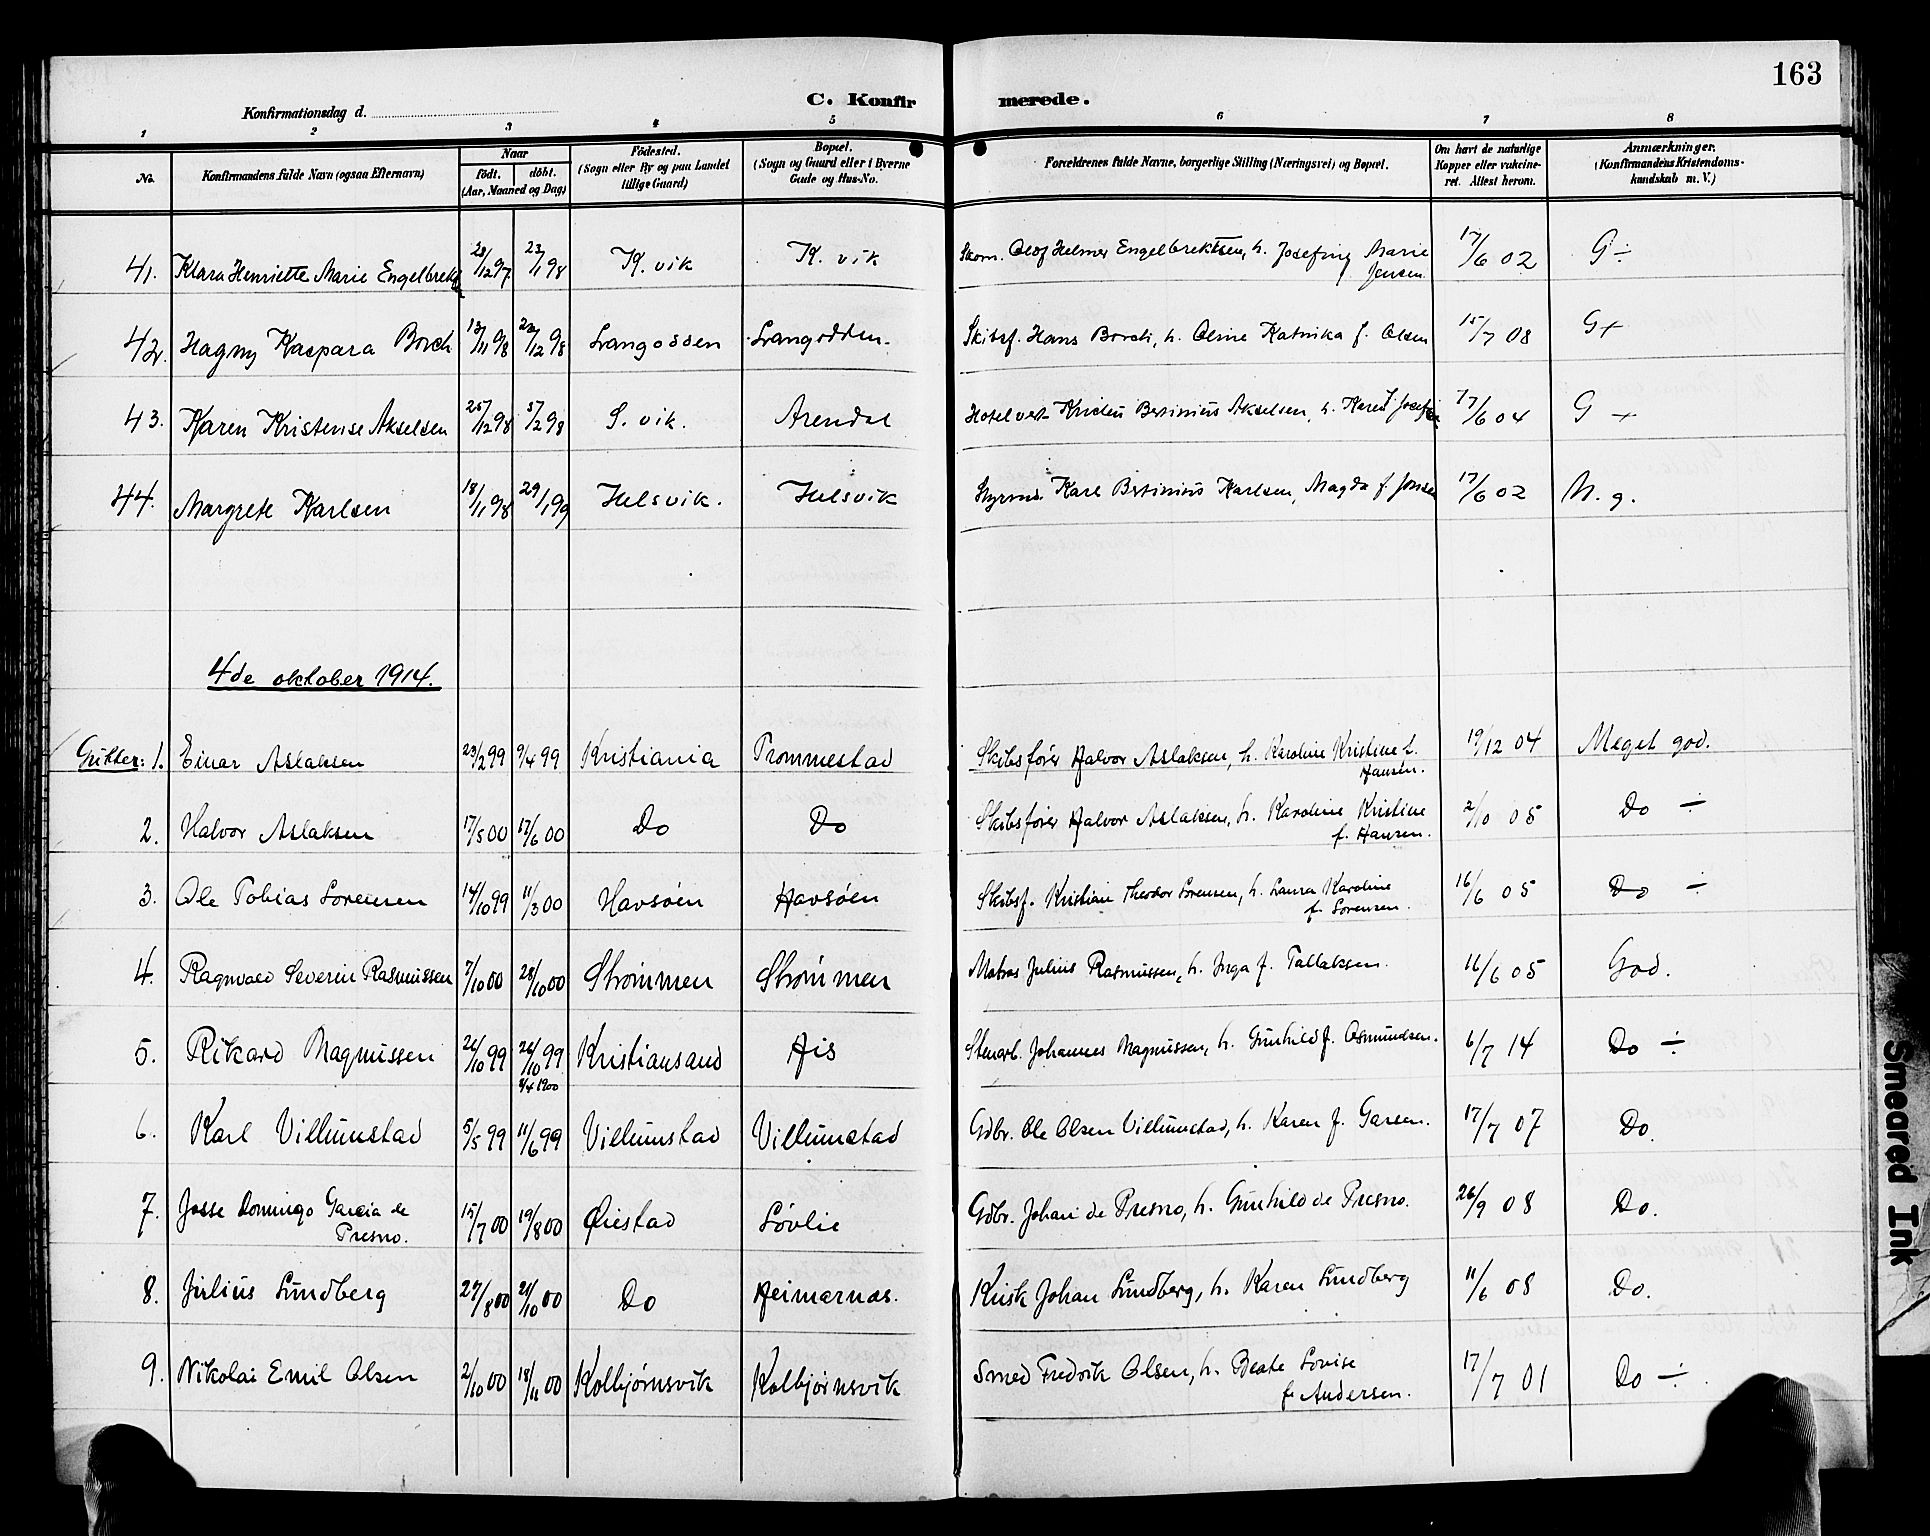 163
C. Konfirmerede.
Konfirmationsdag d.
1 2 3 4 5 6 7 8
No.
Konfirmandens fulde Navn (ogsaa Efternavn)
Naar
födt. döbt.
(Aar, Maaned og Dag)
Födested.
(Sogn eller By og paa Landet
tillige Gaard)
Bopæl.
(Sogn og Gaard eller i Byerne
Gade og Hus-No.
Forældrenes fulde Navne, borgerlige Stilling (Næringsvei) og Bopæl.
Om havt de naturlige
Kopper eller vakcine-
ret. Attest herom.
Anmærkninger.
(Konfirmandens Kristendoms-
kundskab m. V.)
41. Klara Henriette Marie Engelbrekts 28/12 97 23/1 98 K.vik K.vik Skom. Olof Helmer Engelbrektsen, h. Josefine Marie f. Jensen 17/6 02 G ÷
42. Hagny Kaspara Borch 13/11 98 22/12 98 Langodden Langodden. Skibsf. Hans Borch, h. Oline Katrika f. Olsen 15/7 08 G +
43. Karen Kristense Akselsen 25/12 98 5/2 98 S.vik. Arendal Hotelvert Bertinius Akselsen, h. Karen Josef 17/6 04 G +
44. Margrete Karlsen 18/1 98 29/1 99 Helsvik. Helsvik Styrmd. Karl Bertinius Karlsen, Magda f. Jonsen 17/6 02 N. g.
4de oktober 1914.
Gutter: 1. Einar Aslaksen 23/2 99 9/4 99 Kristiania Trommestad Skibsfører Halvor Aslaksen, h. Karoline Kristine f. Hansen. 19/12 04 Meget god.
2. Halvor Aslaksen 17/5 00 17/6 00 Do Do Skibsfører Halvor Aslaksen, h. Karoline Kristine f. Hansen. 2/10 05 Do ÷
3. Ole Tobias Sorensen 14/10 99 11/3 00 Havsøen Havsøen Skibsf. Kristian Theodor Sorensen, h. Laura Karoline f. Sorensen. 16/6 05 Do ÷
4. Ragnvald Severin Rasmussen 7/10 00 28/10 00 Strømmen Strømmen Matros Julius Rasmussen, h. Inga f. Tallaksen. 16/6 05 God.
5. Rikard Magnussen 26/10 99 26/10 99 8/4 1900 Kristiansand His Stenarb. Johannes Magnussen, h. Gunhild f. Osmundsen. 6/7 14 Do ÷
6. Karl Villumstad 5/5 99 11/6 99 Villumstad Villumstad Gdbr. Ole Olsen Villumstad, h. Karen f. Garsen. 17/7 07 Do.
7. Josse Domingo Garcia de Presno. 15/7 00 19/8 00 Øiestad Løvlie Gdbr. Johan de Presno, h. Gunhild de Presno. 26/9 08 Do.
8. Julius Lundberg 27/8 00 21/10 00 Do Heimarnas. Kusk Johan Lundberg, h. Karen Lundberg 11/6 08 Do.
9. Nikolai Emil Olsen 2/10 00 18/11 00 Kolbjørnsvik Kolbjørnsvik Smed Fredrik Olsen, h. Beate Lovise f. Andersen. 17/7 01 Do ÷.
Smeared Ink